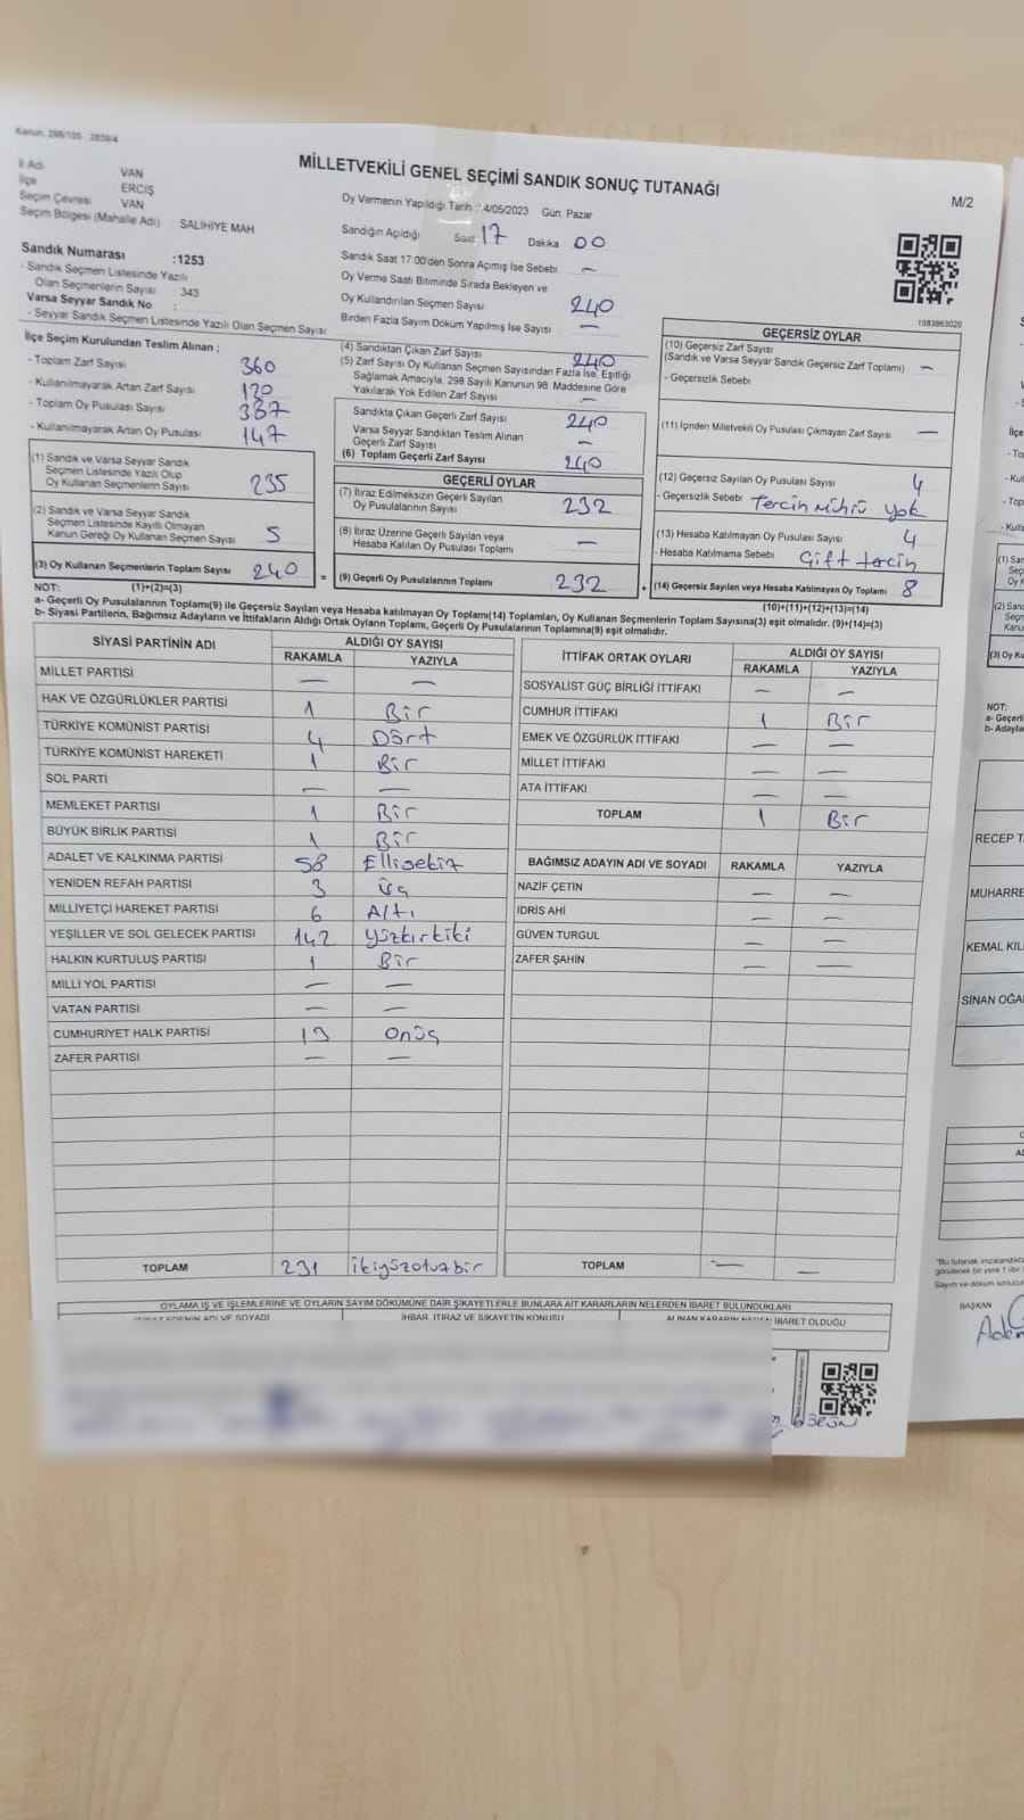 Kanun: 298/105 2839/4
MİLLETVEKİLİ GENEL SEÇİMİ SANDIK SONUÇ TUTANAĞI
M/2
İl Adı VAN
İlçe ERCİŞ
Seçim Çevresi VAN
Seçim Bölgesi (Mahalle Adı) SALİHİYE MAH
Sandık Numarası :1253
- Sandık Seçmen Listesinde Yazılı
Olan Seçmenlerin Sayısı : 343
Varsa Seyyar Sandık No :
- Seyyar Sandık Seçmen Listesinde Yazılı Olan Seçmen Sayısı
Oy Vermenin Yapıldığı Tarih : 4/05/2023 Gün: Pazar
Sandığın Açıldığı Saat 17 Dakika 00
Sandık Saat 17:00'den Sonra Açılmış İse Sebebi —
Oy Verme Saati Bitiminde Sırada Bekleyen ve
Oy Kullandırılan Seçmen Sayısı 240
Birden Fazla Sayım Döküm Yapılmış İse Sayısı —
1983863020
İlçe Seçim Kurulundan Teslim Alınan ;
- Toplam Zarf Sayısı 360
- Kullanılmayarak Artan Zarf Sayısı 120
- Toplam Oy Pusulası Sayısı 387
- Kullanılmayarak Artan Oy Pusulası 147
(1) Sandık ve Varsa Seyyar Sandık
Seçmen Listesinde Yazılı Olup
Oy Kullanan Seçmenlerin Sayısı 235
(2) Sandık ve Varsa Seyyar Sandık
Seçmen Listesinde Kayıtlı Olmayan
Kanun Gereği Oy Kullanan Seçmen Sayısı 5
(3) Oy Kullanan Seçmenlerin Toplam Sayısı 240 =
(4) Sandıktan Çıkan Zarf Sayısı 240
(5) Zarf Sayısı Oy Kullanan Seçmen Sayısından Fazla İse, Eşitliği
Sağlamak Amacıyla, 298 Sayılı Kanunun 98. Maddesine Göre
Yakılarak Yok Edilen Zarf Sayısı —
Sandıkta Çıkan Geçerli Zarf Sayısı 240
Varsa Seyyar Sandıktan Teslim Alınan
Geçerli Zarf Sayısı —
(6) Toplam Geçerli Zarf Sayısı 240
GEÇERLİ OYLAR
(7) İtiraz Edilmeksizin Geçerli Sayılan
Oy Pusulalarının Sayısı 232
(8) İtiraz Üzerine Geçerli Sayılan veya
Hesaba Katılan Oy Pusulası Toplamı —
(9) Geçerli Oy Pusulalarının Toplamı 232 +
GEÇERSİZ OYLAR
(10) Geçersiz Zarf Sayısı
(Sandık ve Varsa Seyyar Sandık Geçersiz Zarf Toplamı) —
- Geçersizlik Sebebi
(11) İçinden Milletvekili Oy Pusulası Çıkmayan Zarf Sayısı —
(12) Geçersiz Sayılan Oy Pusulası Sayısı 4
- Geçersizlik Sebebi Tercin Mührü yok
(13) Hesaba Katılmayan Oy Pusulası Sayısı 4
- Hesaba Katılmama Sebebi Çift tercin
(14) Geçersiz Sayılan veya Hesaba Katılmayan Oy Toplamı 8
NOT: (1)+(2)=(3)
(10)+(11)+(12)+(13)=(14)
a- Geçerli Oy Pusulalarının Toplamı(9) ile Geçersiz Sayılan veya Hesaba katılmayan Oy Toplamı(14) Toplamları, Oy Kullanan Seçmenlerin Toplam Sayısına(3) eşit olmalıdır. (9)+(14)=(3)
b- Siyasi Partilerin, Bağımsız Adayların ve İttifakların Aldığı Ortak Oyların Toplamı, Geçerli Oy Pusulalarının Toplamına(9) eşit olmalıdır.
SİYASİ PARTİNİN ADI ALDIĞI OY SAYISI
RAKAMLA YAZIYLA
MİLLET PARTİSİ — —
HAK VE ÖZGÜRLÜKLER PARTİSİ 1 Bir
TÜRKİYE KOMÜNİST PARTİSİ 4 Dört
TÜRKİYE KOMÜNİST HAREKETİ 1 Bir
SOL PARTİ — —
MEMLEKET PARTİSİ 1 Bir
BÜYÜK BİRLİK PARTİSİ 1 Bir
ADALET VE KALKINMA PARTİSİ 58 Ellisekiz
YENİDEN REFAH PARTİSİ 3 üç
MİLLİYETÇİ HAREKET PARTİSİ 6 Altı
YEŞİLLER VE SOL GELECEK PARTİSİ 142 yüzkırkiki
HALKIN KURTULUŞ PARTİSİ 1 Bir
MİLLİ YOL PARTİSİ — —
VATAN PARTİSİ — —
CUMHURİYET HALK PARTİSİ 13 Onüç
ZAFER PARTİSİ — —
TOPLAM 231 ikiyüzotuzbir
İTTİFAK ORTAK OYLARI ALDIĞI OY SAYISI
RAKAMLA YAZIYLA
SOSYALİST GÜÇ BİRLİĞİ İTTİFAKI — —
CUMHUR İTTİFAKI 1 Bir
EMEK VE ÖZGÜRLÜK İTTİFAKI — —
MİLLET İTTİFAKI — —
ATA İTTİFAKI — —
TOPLAM 1 Bir
BAĞIMSIZ ADAYIN ADI VE SOYADI RAKAMLA YAZIYLA
NAZİF ÇETİN — —
İDRİS AHİ — —
GÜVEN TURGUL — —
ZAFER ŞAHİN — —
TOPLAM — —
OYLAMA İŞ VE İŞLEMLERİNE VE OYLARIN SAYIM DÖKÜMÜNE DAİR ŞİKAYETLERLE BUNLARA AİT KARARLARIN NELERDEN İBARET BULUNDUKLARI
ADI VE SOYADI İHBAR, İTİRAZ VE ŞİKAYETİN KONUSU ALINAN KARARIN NEDEN İBARET OLDUĞU
NOT:
a- Geçerli
b- Adayla
RECEP T
MUHARRE
KEMAL KIL
SİNAN OĞA
BAŞKAN